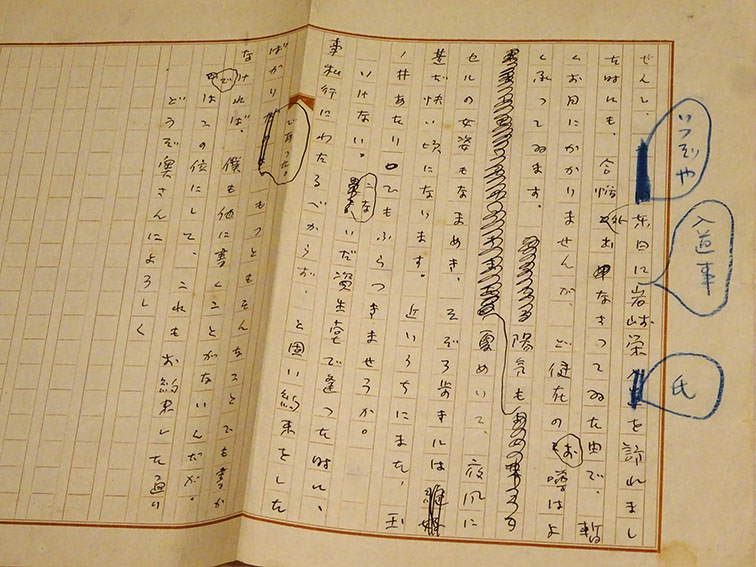 ぜんし、
いつぞや
末日に岩崎栄氏を訪れまし
入道事
氏
た時にも、会悟お出なさつてゐた由で、暫
くお目にかかりませんが、ご健在のお噂はよ
く承つてゐます。
陽気も
夏めいて、夜風に
セルの女姿もなまめき、そぞろ歩きには
甚だ快い頃になります。近いうちにまた、玉
ノ井あたりひもふらつきませうか。
いけない。こないだ資生堂で逢つた時に、
事私行にわたるべからず、と固い約束をした
ばかりであつた。もつともそんなことでも書か
なければ、僕も他に書くことがないんだが。
ではこの位にして、これもお約束した通り
どうぞ奥さんによろしく